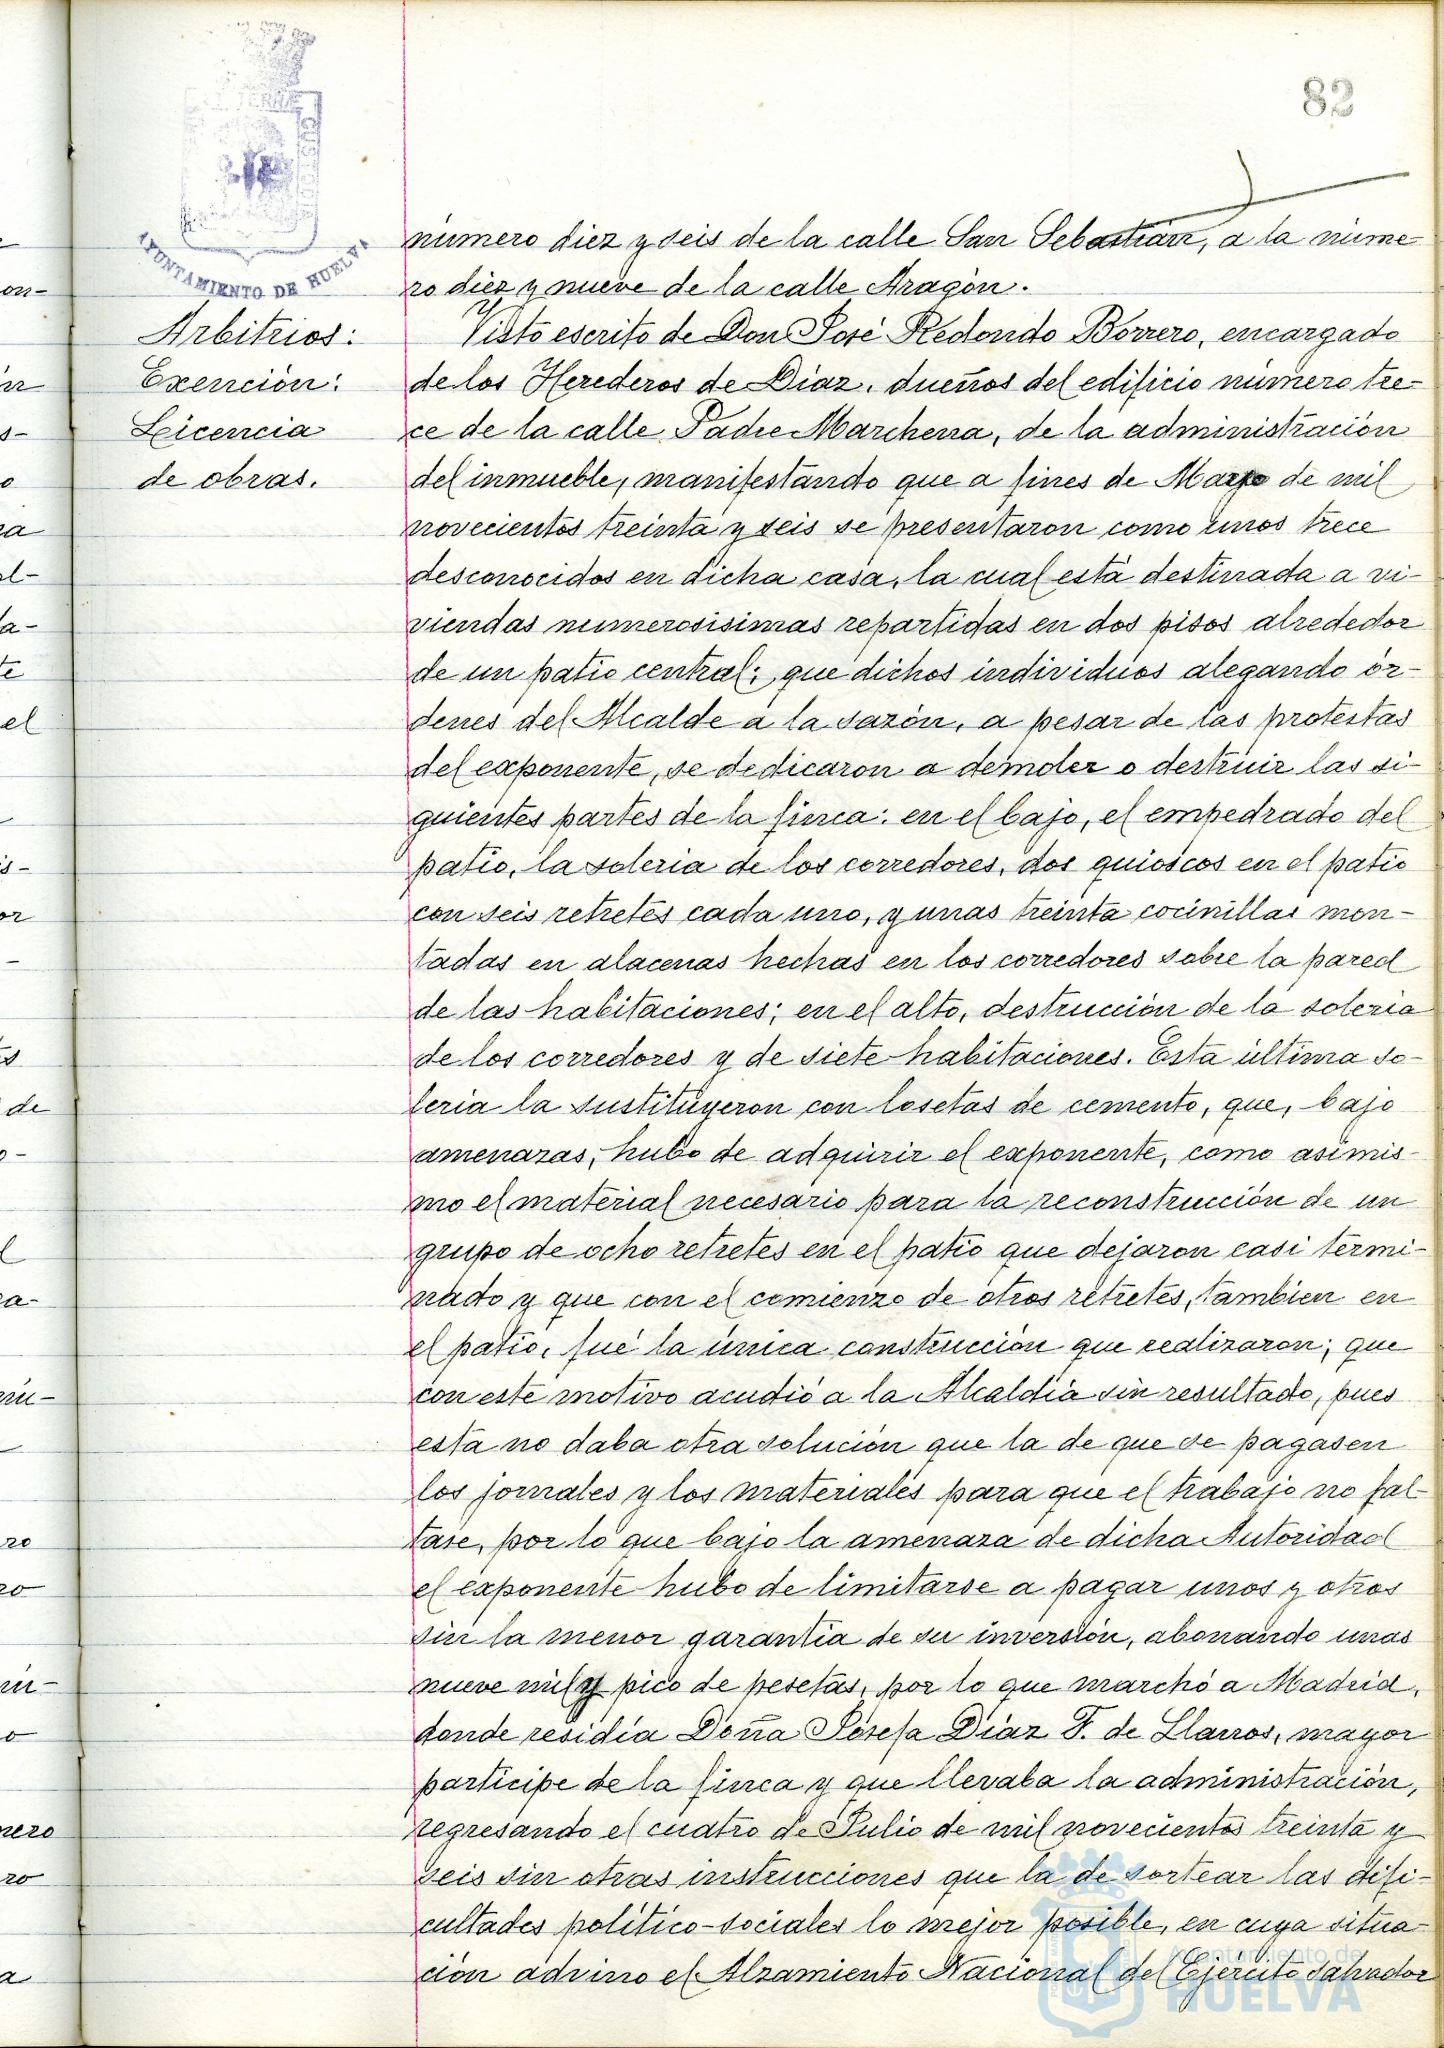 82
AYUNTAMIENTO DE HUELVA
número diez y seis de la calle San Sebastián, a la núme-
ro diez y nueve de la calle Aragón.
Arbitrios:
Exención:
Licencia
de obras.
Visto escrito de Don José Redondo Borrero, encargado
de los Herederos de Díaz, dueños del edificio número tre-
ce de la calle Padre Marchena, de la administración
del inmueble, manifestando que a fines de Marzo de mil
novecientos treinta y seis se presentaron como unos trece
desconocidos en dicha casa, la cual está destinada a vi-
viendas numerosisimas repartidas en dos pisos alrededor
de un patio central; que dichos individuos alegando ór-
denes del Alcalde a la sazón, a pesar de las protestas
del exponente, se dedicaron a demoler o destruir las si-
guientes partes de la finca: en el bajo, el empedrado del
patio, la soleria de los corredores, dos quioscos en el patio
con seis retretes cada uno, y unas treinta cocinillas mon-
tadas en alacenas hechas en los corredores sobre la pared
de las habitaciones; en el alto, destrucción de la soleria
de los corredores y de siete habitaciones. Esta última so-
leria la sustituyeron con losetas de cemento, que, bajo
amenazas, hubo de adquirir el exponente, como asimis-
mo el material necesario para la reconstrucción de un
grupo de ocho retretes en el patio que dejaron casi termi-
nado y que con el comienzo de otros retretes, tambien en
el patio, fué la única construcción que realizaron; que
con este motivo acudió a la Alcaldía sin resultado, pues
esta no daba otra solución que la de que se pagasen
los jornales y los materiales para que el trabajo no fal-
tase, por lo que bajo la amenaza de dicha Autoridad
el exponente hubo de limitarse a pagar unos y otros
sin la menor garantía de su inversión, abonando unas
nueve mil y pico de pesetas, por lo que marchó a Madrid,
donde residía Doña Josefa Díaz F. de Llanos, mayor
participe de la finca y que llevaba la administración,
regresando el cuatro de Julio de mil novecientos treinta y
seis sin otras instrucciones que la de sortear las difi-
cultades político-sociales lo mejor posible, en cuya situa-
ción advino el Alzamiento Nacional del Ejército Salvador
Ayuntamiento de
HUELVA